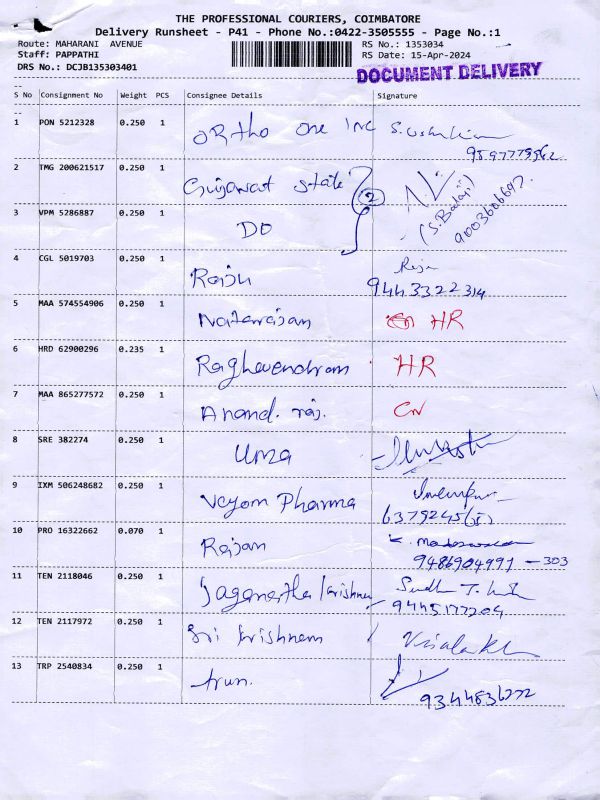 THE PROFESSIONAL COURIERS, COIMBATORE
Delivery Runsheet - P41 - Phone No.:0422-3505555 - Page No.:1
Route: MAHARANI AVENUE RS No.: 1353034
Staff: PAPPATHI RS Date: 15-Apr-2024
DRS No.: DCJB135303401 DOCUMENT DELIVERY
S No Consignment No Weight PCS Consignee Details Signature
1 PON 5212328 0.250 1 ORtho One INC
2 TMG 200621517 0.250 1 Gujarat State 2
(S.Balaji)
9003606697.
3 VPM 5286887 0.250 1 DO
4 CGL 5019703 0.250 1 Raju Raja
9443322314
5 MAA 574554906 0.250 1 Natarajan HR
6 HRD 62900296 0.235 1 Raghavendram HR
7 MAA 865277572 0.250 1 Anand. raj. CN
8 SRE 382274 0.250 1 Uma
9 IXM 506248682 0.250 1 Veyom Pharma
10 PRO 16322662 0.070 1 Rajan
9486904991 - 303
11 TEN 2118046 0.250 1 Jaganatha krishnan
9445177204
12 TEN 2117972 0.250 1 Sri krishnam
13 TRP 2540834 0.250 1 Arun.